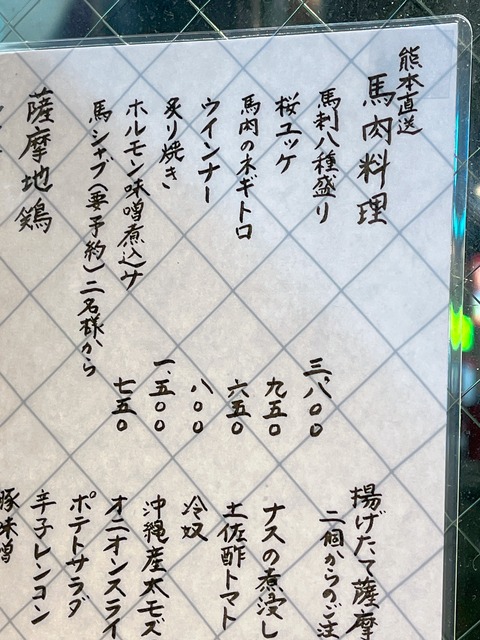 熊本直送
馬肉料理
馬刺八種盛り 三、八〇〇
桜ユッケ 九五〇
馬肉のネギトロ 六五〇
ウインナー 八〇〇
炙り焼き 一、五〇〇
ホルモン味噌煮込み 七五〇
馬シャブ(要予約)二名様から
薩摩地鶏
揚げたて薩摩
二個からのご注
ナスの煮浸し
土佐酢トマト
冷奴
沖縄産太モズ
オニオンスライ
ポテトサラダ
辛子レンコン
豚味噌